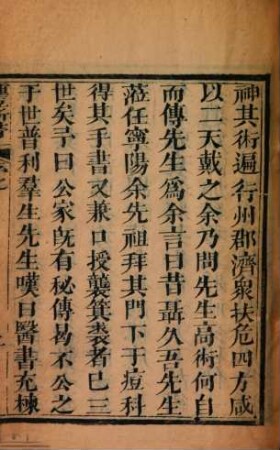 神其術遍行州郡濟衆扶危四方咸
以二天戴之余乃問先生高術何自
而傳先生爲余言曰昔聶久吾先生
蒞任寧陽余先祖拜其門下于痘科
得其手書又兼口授襲箕裘者已三
世矣予曰公家旣有秘傳曷不公之
于世普利羣生先生嘆曰醫書充棟